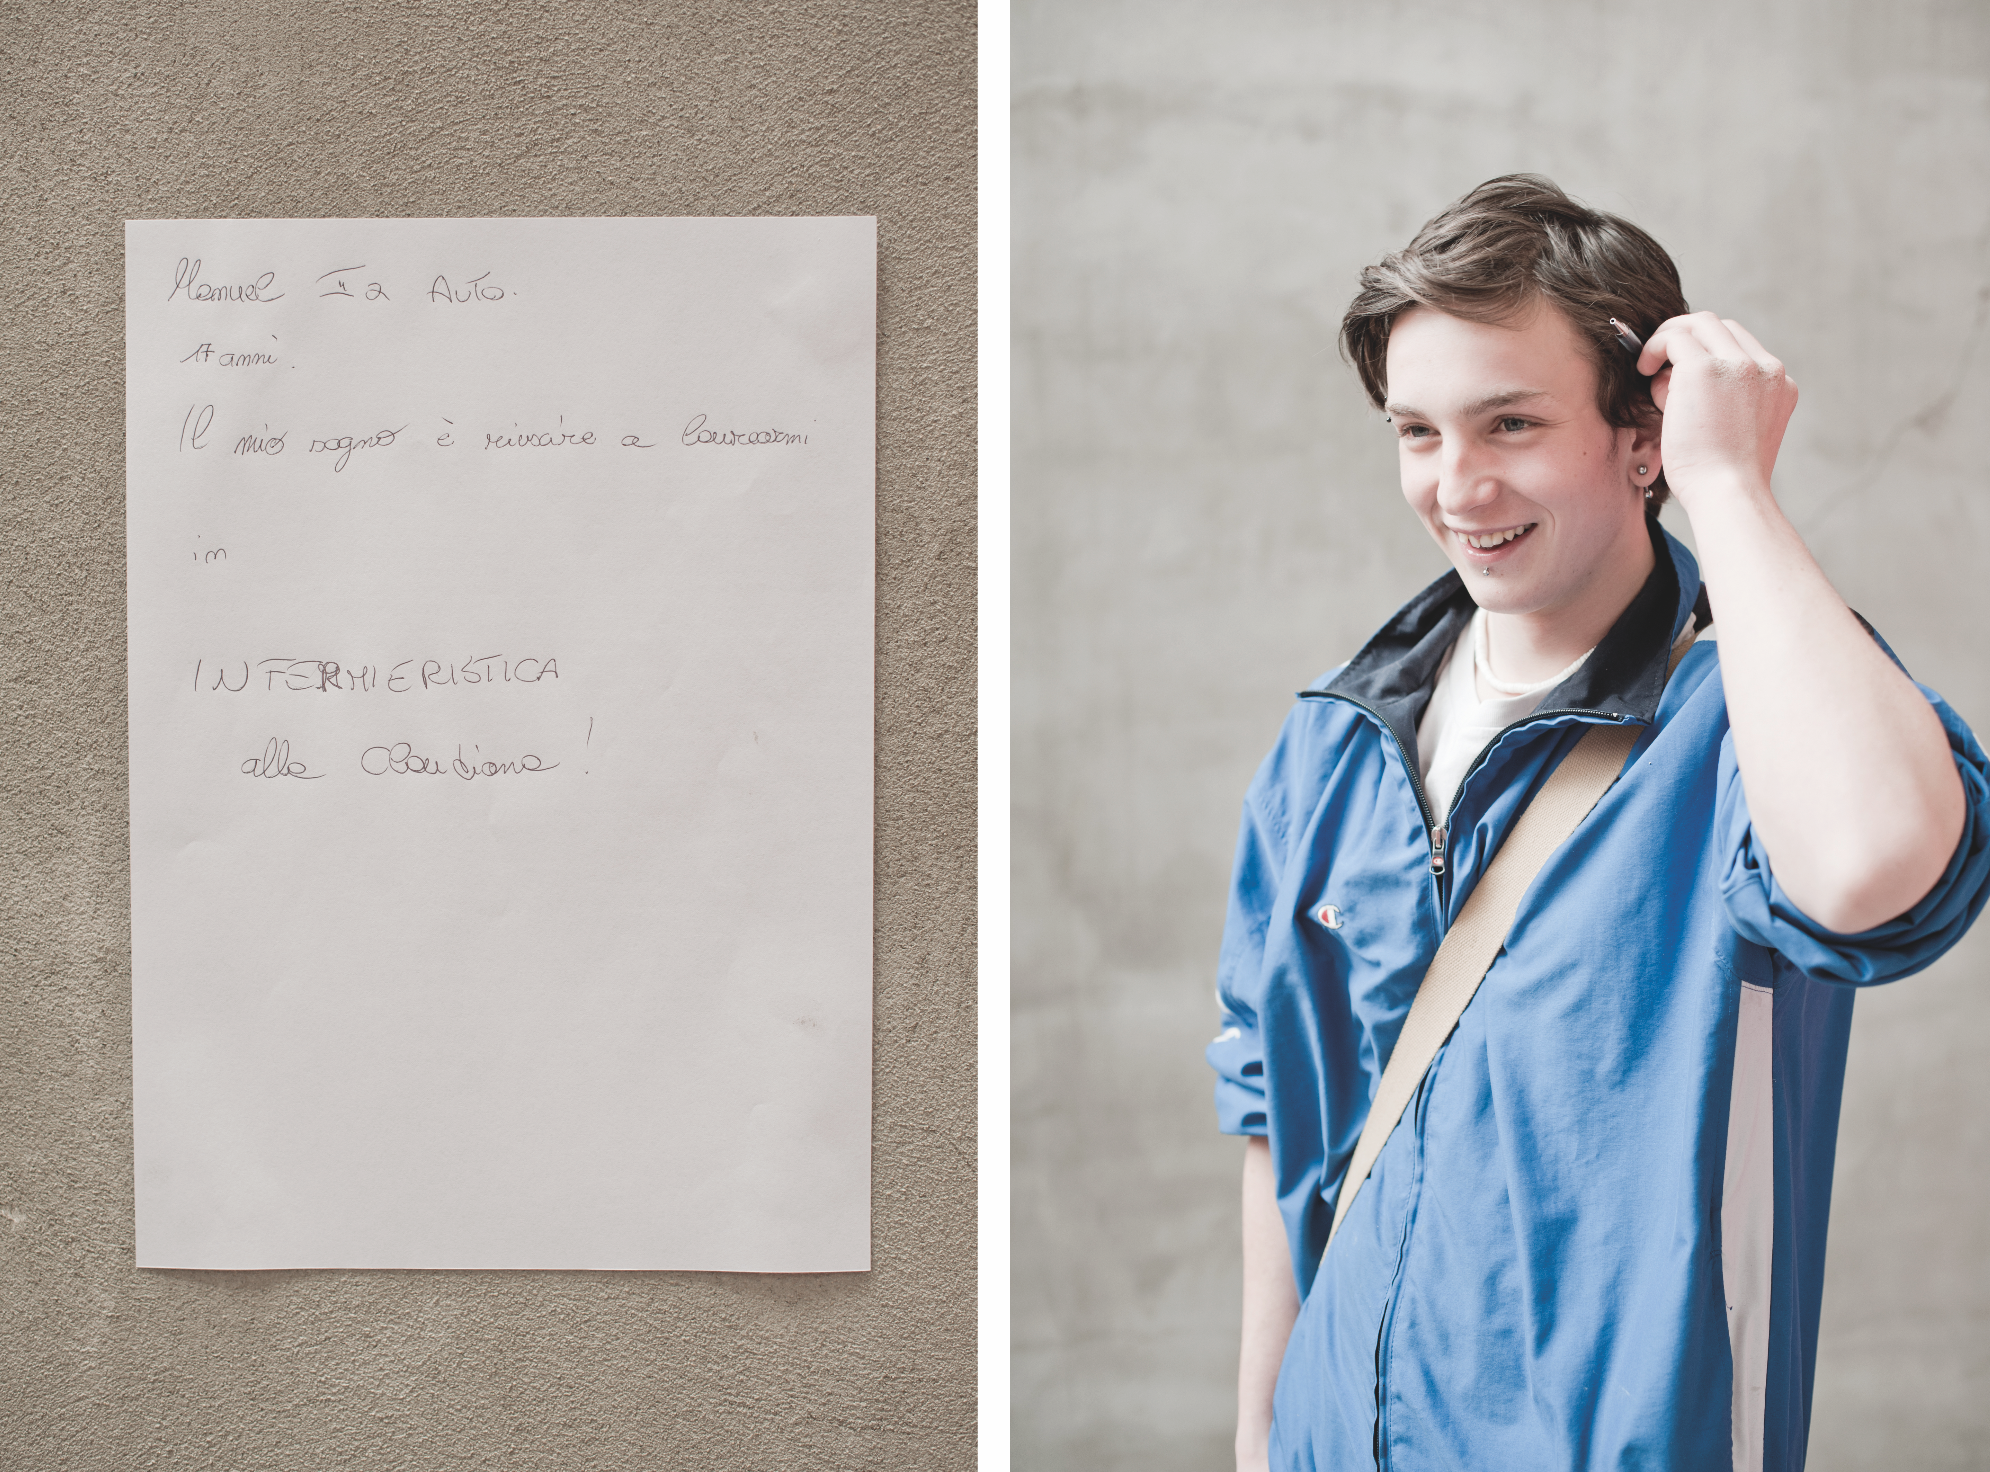 Manuel II a Auto.
17 anni.
Il mio sogno è riuscire a laurearmi
in
INFERMIERISTICA
alla Claudiana!